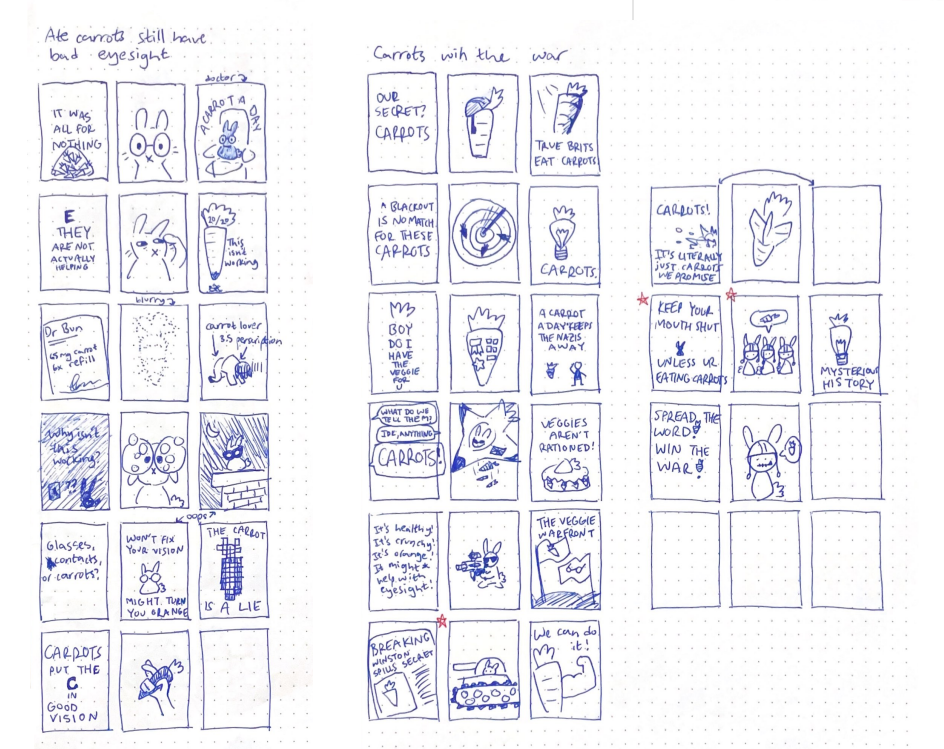 Ate carrots still have
bad eyesight
IT WAS
ALL FOR
NOTHING
doctor
A CARROT A DAY
E
THEY
ARE NOT
ACTUALLY
HELPING
20/20
This
isn't
working
Dr Bun
carrot
6x refill
blurry
carrot lover
3.5 perscription
Why isn't
this
working?
Glasses,
contacts,
or carrots?
oops
WON'T FIX
YOUR VISION
MIGHT TURN
YOU ORANGE
THE CARROT
IS A LIE
CARROTS
PUT THE
C
IN
GOOD
VISION
Carrots win the war
OUR
SECRET?
CARROTS
TRUE BRITS
EAT CARROTS
A BLACKOUT
IS NO MATCH
FOR THESE
CARROTS
CARROTS.
BOY
DO I
HAVE
THE
VEGGIE
FOR
U
A CARROT
A DAY KEEPS
THE NAZIS
AWAY
WHAT DO WE
TELL THEM?
IDK, ANYTHING
CARROTS!
VEGGIES
AREN'T
RATIONED!
It's healthy!
It's crunchy!
It's orange!
It might
help with
eyesight!
THE VEGGIE
WARFRONT
BREAKING
WINSTON
SPILLS SECRET
We can do
it!
CARROTS!
IT'S LITERALLY
JUST CARROTS
WE PROMISE
KEEP YOUR
MOUTH SHUT
UNLESS UR
EATING CARROTS
MYSTERIOUS
HISTORY
SPREAD THE
WORD!
WIN THE
WAR!